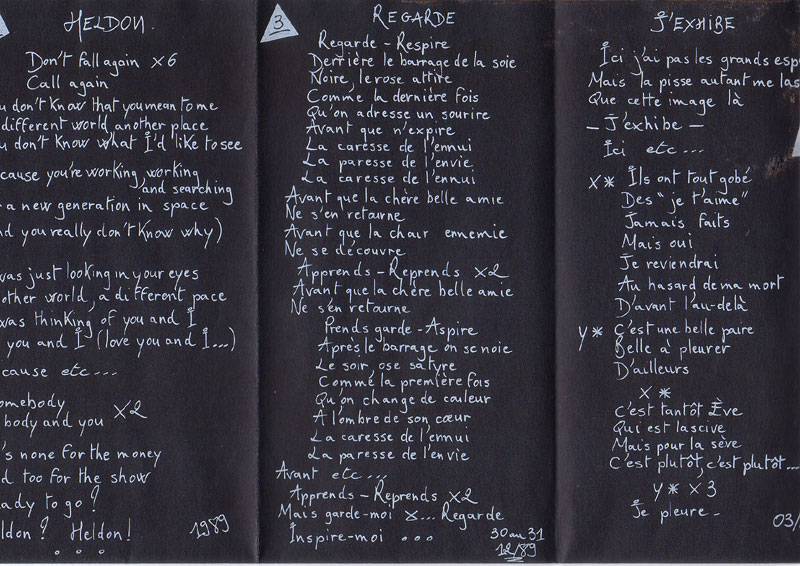 HELDON
Don't fall again x6
Call again
u don't know that you mean to me
different world another place
u don't know what I'd like to see
cause you're working, working
and searching
a new generation in space
nd you really don't know why)
was just looking in your eyes
other world, a different pace
was thinking of you and I
you and I (love you and I...)
cause etc...
omebody
body and you x2
's none for the money
d too for the show
eady to go?
ldon? Heldon!
...
1989
3
REGARDE
Regarde - Respire
Derrière le barrage de la soie
Noire, le rose attire
Comme la dernière fois
Qu'on adresse un sourire
Avant que n'expire
La caresse de l'ennui
La paresse de l'envie
La caresse de l'ennui
Avant que la chère belle amie
Ne s'en retourne
Avant que la chair ennemie
Ne se découvre
Apprends - Reprends x2
Avant que la chère belle amie
Ne s'en retourne
Prends garde - Aspire
Après le barrage on se noie
Le soir, ose satyre
Comme la première fois
Qu'on change de couleur
A l'ombre de son cœur
La caresse de l'ennui
La paresse de l'envie
Avant etc...
Apprends - Reprends x2
Mais garde-moi x... Regarde
Inspire-moi ...
30 au 31
12/89
J'EXHIBE
Ici j'ai pas les grands esp
Mais la pisse autant me las
Que cette image là
- J'exhibe -
Ici etc...
x* Ils ont tout gobé
Des "je t'aime"
Jamais faits
Mais oui
Je reviendrai
Au hasard de ma mort
D'avant l'au-delà
y* C'est une belle paire
Belle à pleurer
D'ailleurs
x *
C'est tantôt Ève
Qui est lascive
Mais pour la sève
C'est plutôt, c'est plutôt...
y* x3
Je pleure -
03/